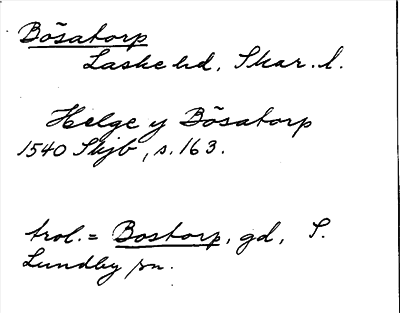 Bösatorp
Laske hd, Skar. l.
Helge y Bösatorp
1540 Skjb, s. 163.
trol. = Bostorp, gd, S.
Lundby sn.